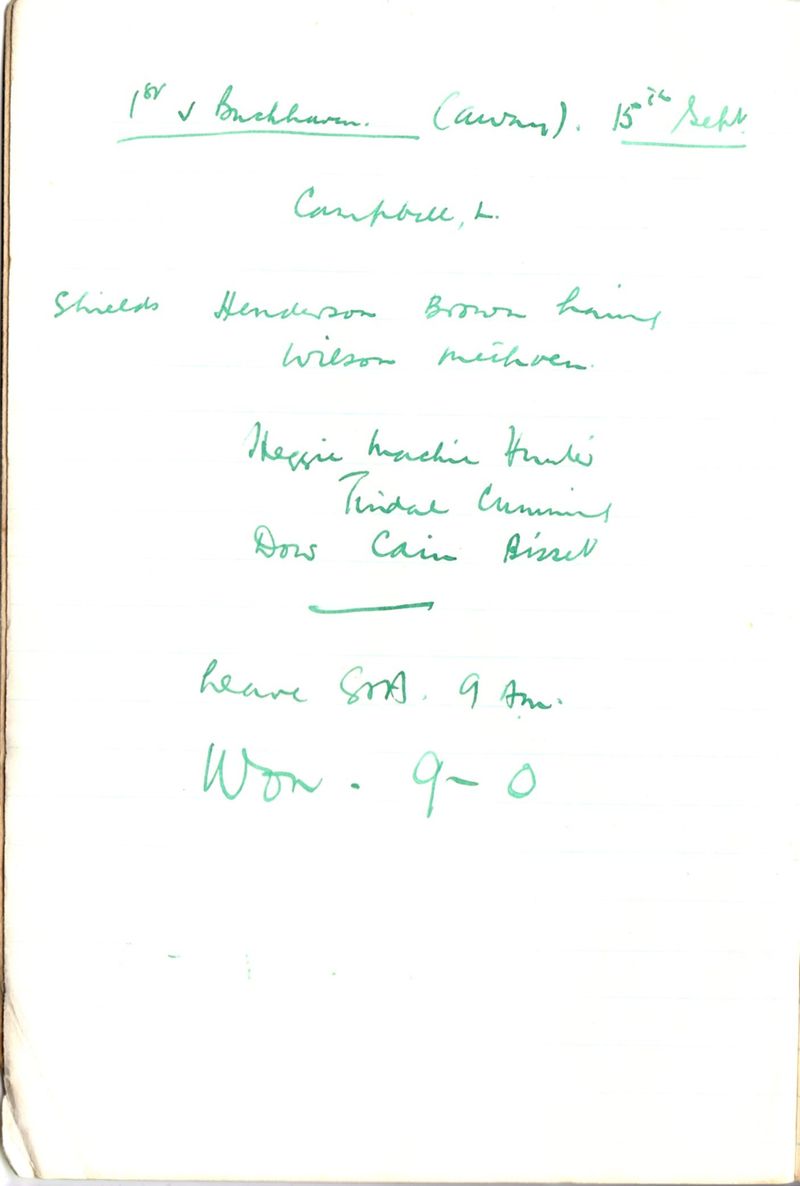 1st v Buckhaven. (away). 15th Sept
Campbell, L.
Shields Henderson Brown Laing
Wilson Methven.
Heggie Mackie Hunter
Tindal Cumming
Dow Cain Bisset
Leave 9 Am.
Won. 9-0